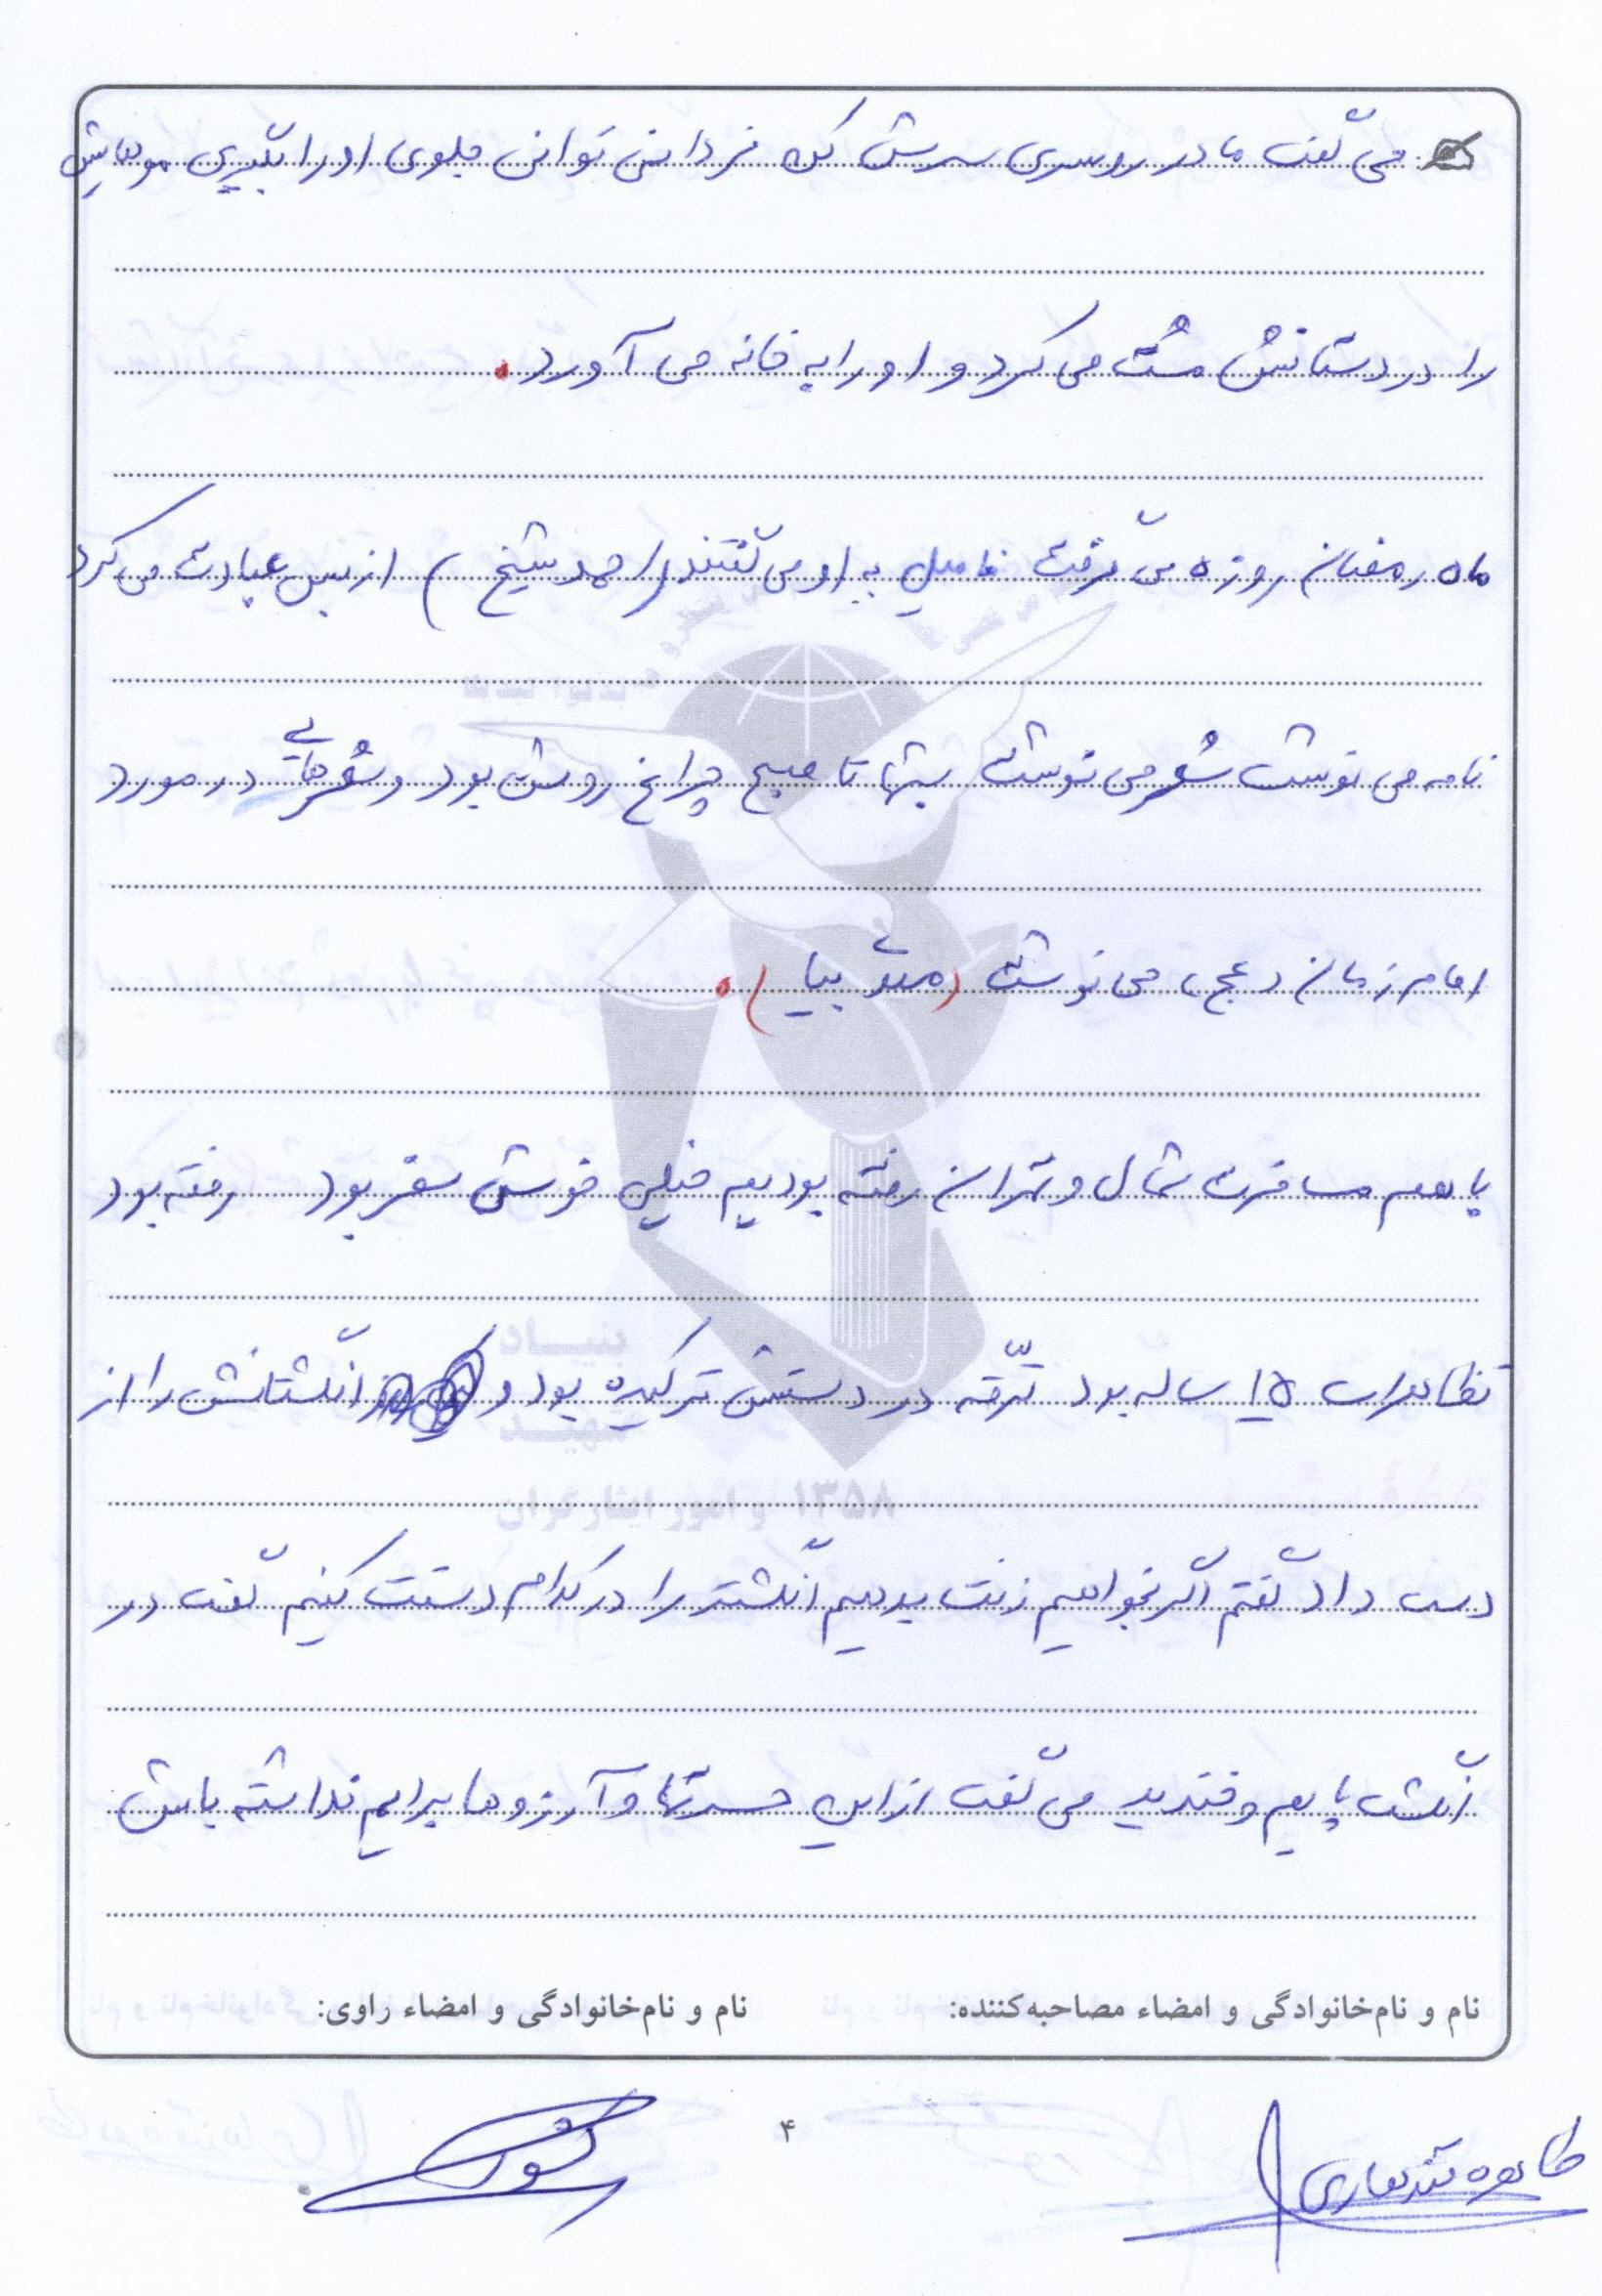 می گفت مادر روسری سرش کن فردا نمی توانی جلوی او را بگیری موهایش
را در دستانش مشت می کرد و او را به خانه می آورد.
ماه رمضان روزه می گرفت فامیل به او می گفتند (احمد شیخ) از بس عبادت می کرد
نامه می نوشت شعر می نوشت شبها تا صبح چراغ روشن بود و شعرهایی در مورد
امام زمان (عج) می نوشت (مهدی بیا).
با هم مسافرت شمال و تهران رفته بودیم خیلی خوش سفر بود رفته بود
تظاهرات ۱۵ ساله بود ترقه در دستش ترکیده بود و انگشتانش را از
دست داد گفتم اگر بخواهیم زنت بدهیم انگشتر را در کدام دستت کنیم گفت در
انگشت پایم و خندید می گفت از این حسرتها و آرزوها برایم نداشته باش
نام و نام‌خانوادگی و امضاء مصاحبه‌کننده:
نام و نام‌خانوادگی و امضاء راوی:
۴
طاهره قندهاری
بنیاد
شهید
و امور ایثارگران
۱۳۵۸